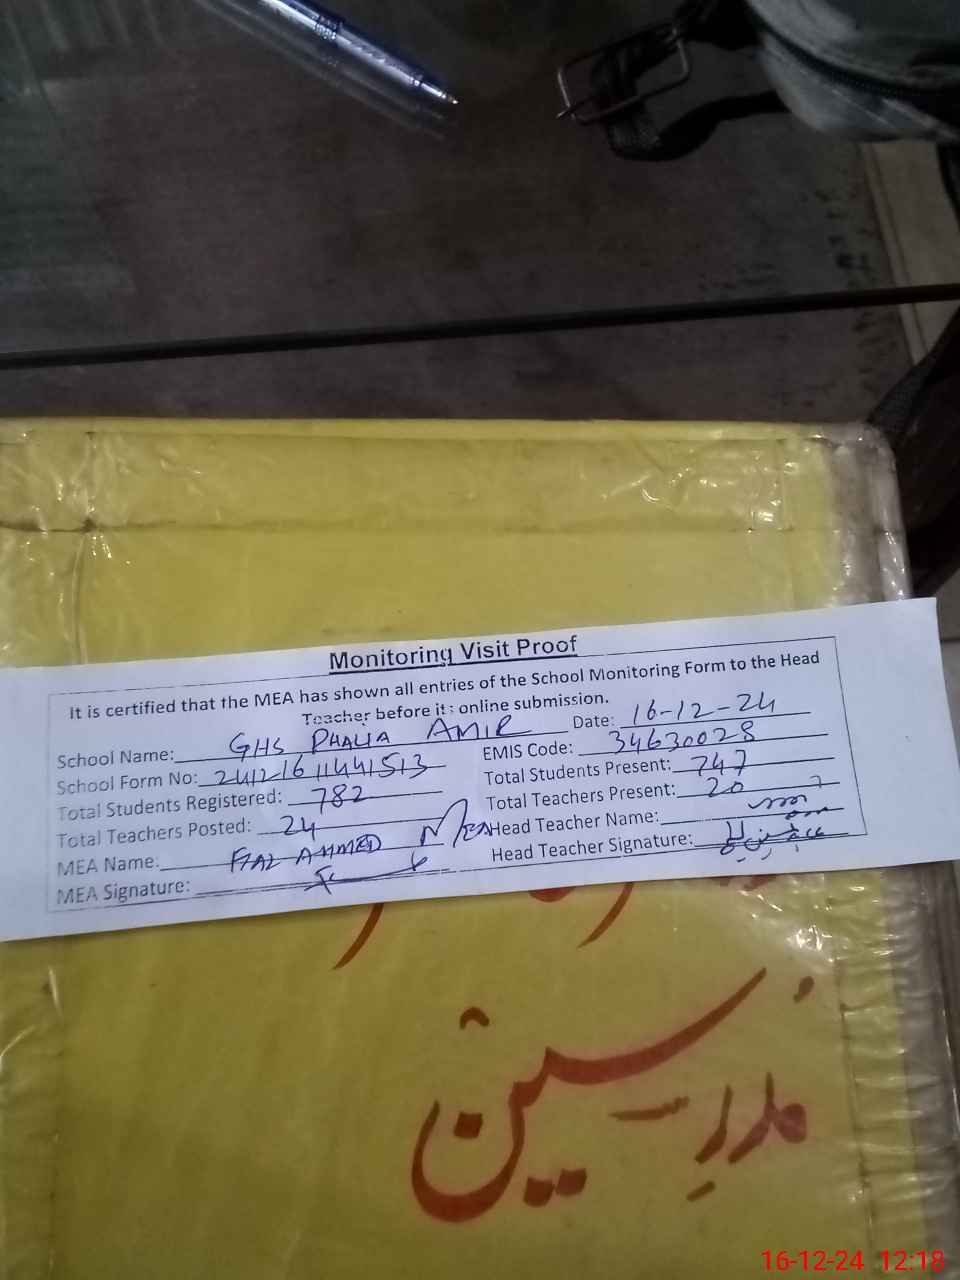 Monitoring Visit Proof
It is certified that the MEA has shown all entries of the School Monitoring Form to the Head
Teacher before its online submission.
School Name: GHS DHALIA AMIR Date: 16-12-24
School Form No: 241216 11441513 EMIS Code: 34630028
Total Students Registered: 782 Total Students Present: 747
Total Teachers Posted: 24 Total Teachers Present: 20
MEA Name: AHMED MEA Head Teacher Name:
MEA Signature: Head Teacher Signature:
مدرسین
16-12-24 12:18